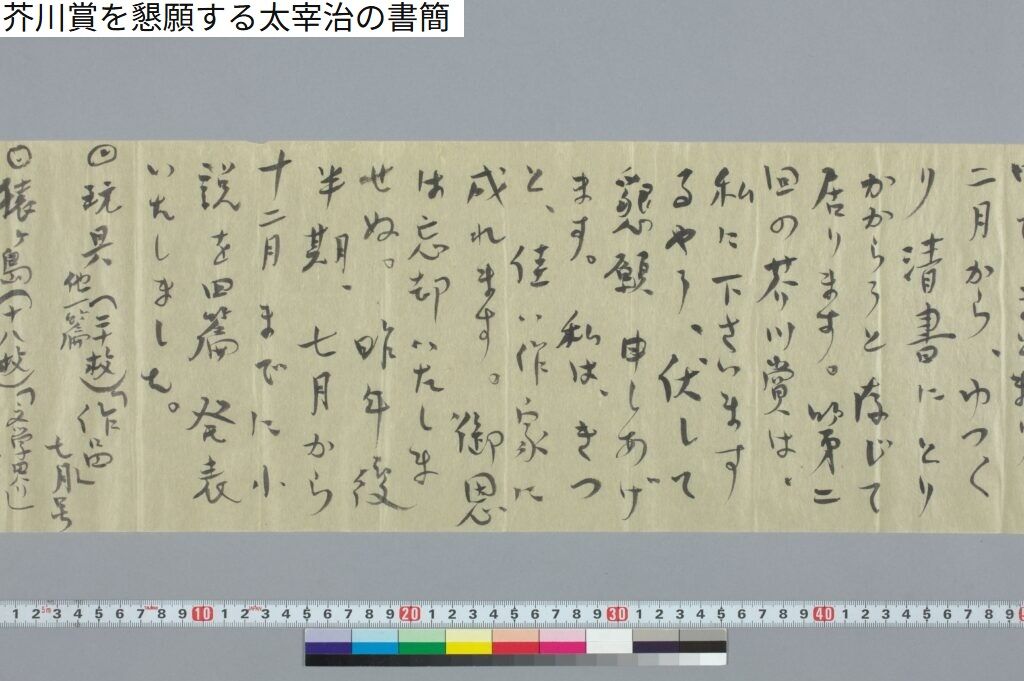 芥川賞を懇願する太宰治の書簡
二月から、ゆつく
り清書にとり
かからうと存じて
居ります。第二
回の芥川賞は、
私に下さいます
るやう、伏して
懇願申しあげ
ます。私は、きつ
と、佳い作家に
成れます。御恩
は忘却いたしま
せぬ。昨年後
半期、七月から
十二月までに小
説を四篇発表
いたしました。
◎玩具(二十枚)「作品」
他一篇
七月号
◎猿ヶ島(十八枚)「文学界」
1 2 3 4 5 6 7 8 9 10 1 2 3 4 5 6 7 8 9 20 1 2 3 4 5 6 7 8 9 30 1 2 3 4 5 6 7 8 9 40 1 2 3 4 5 6 7 8 9